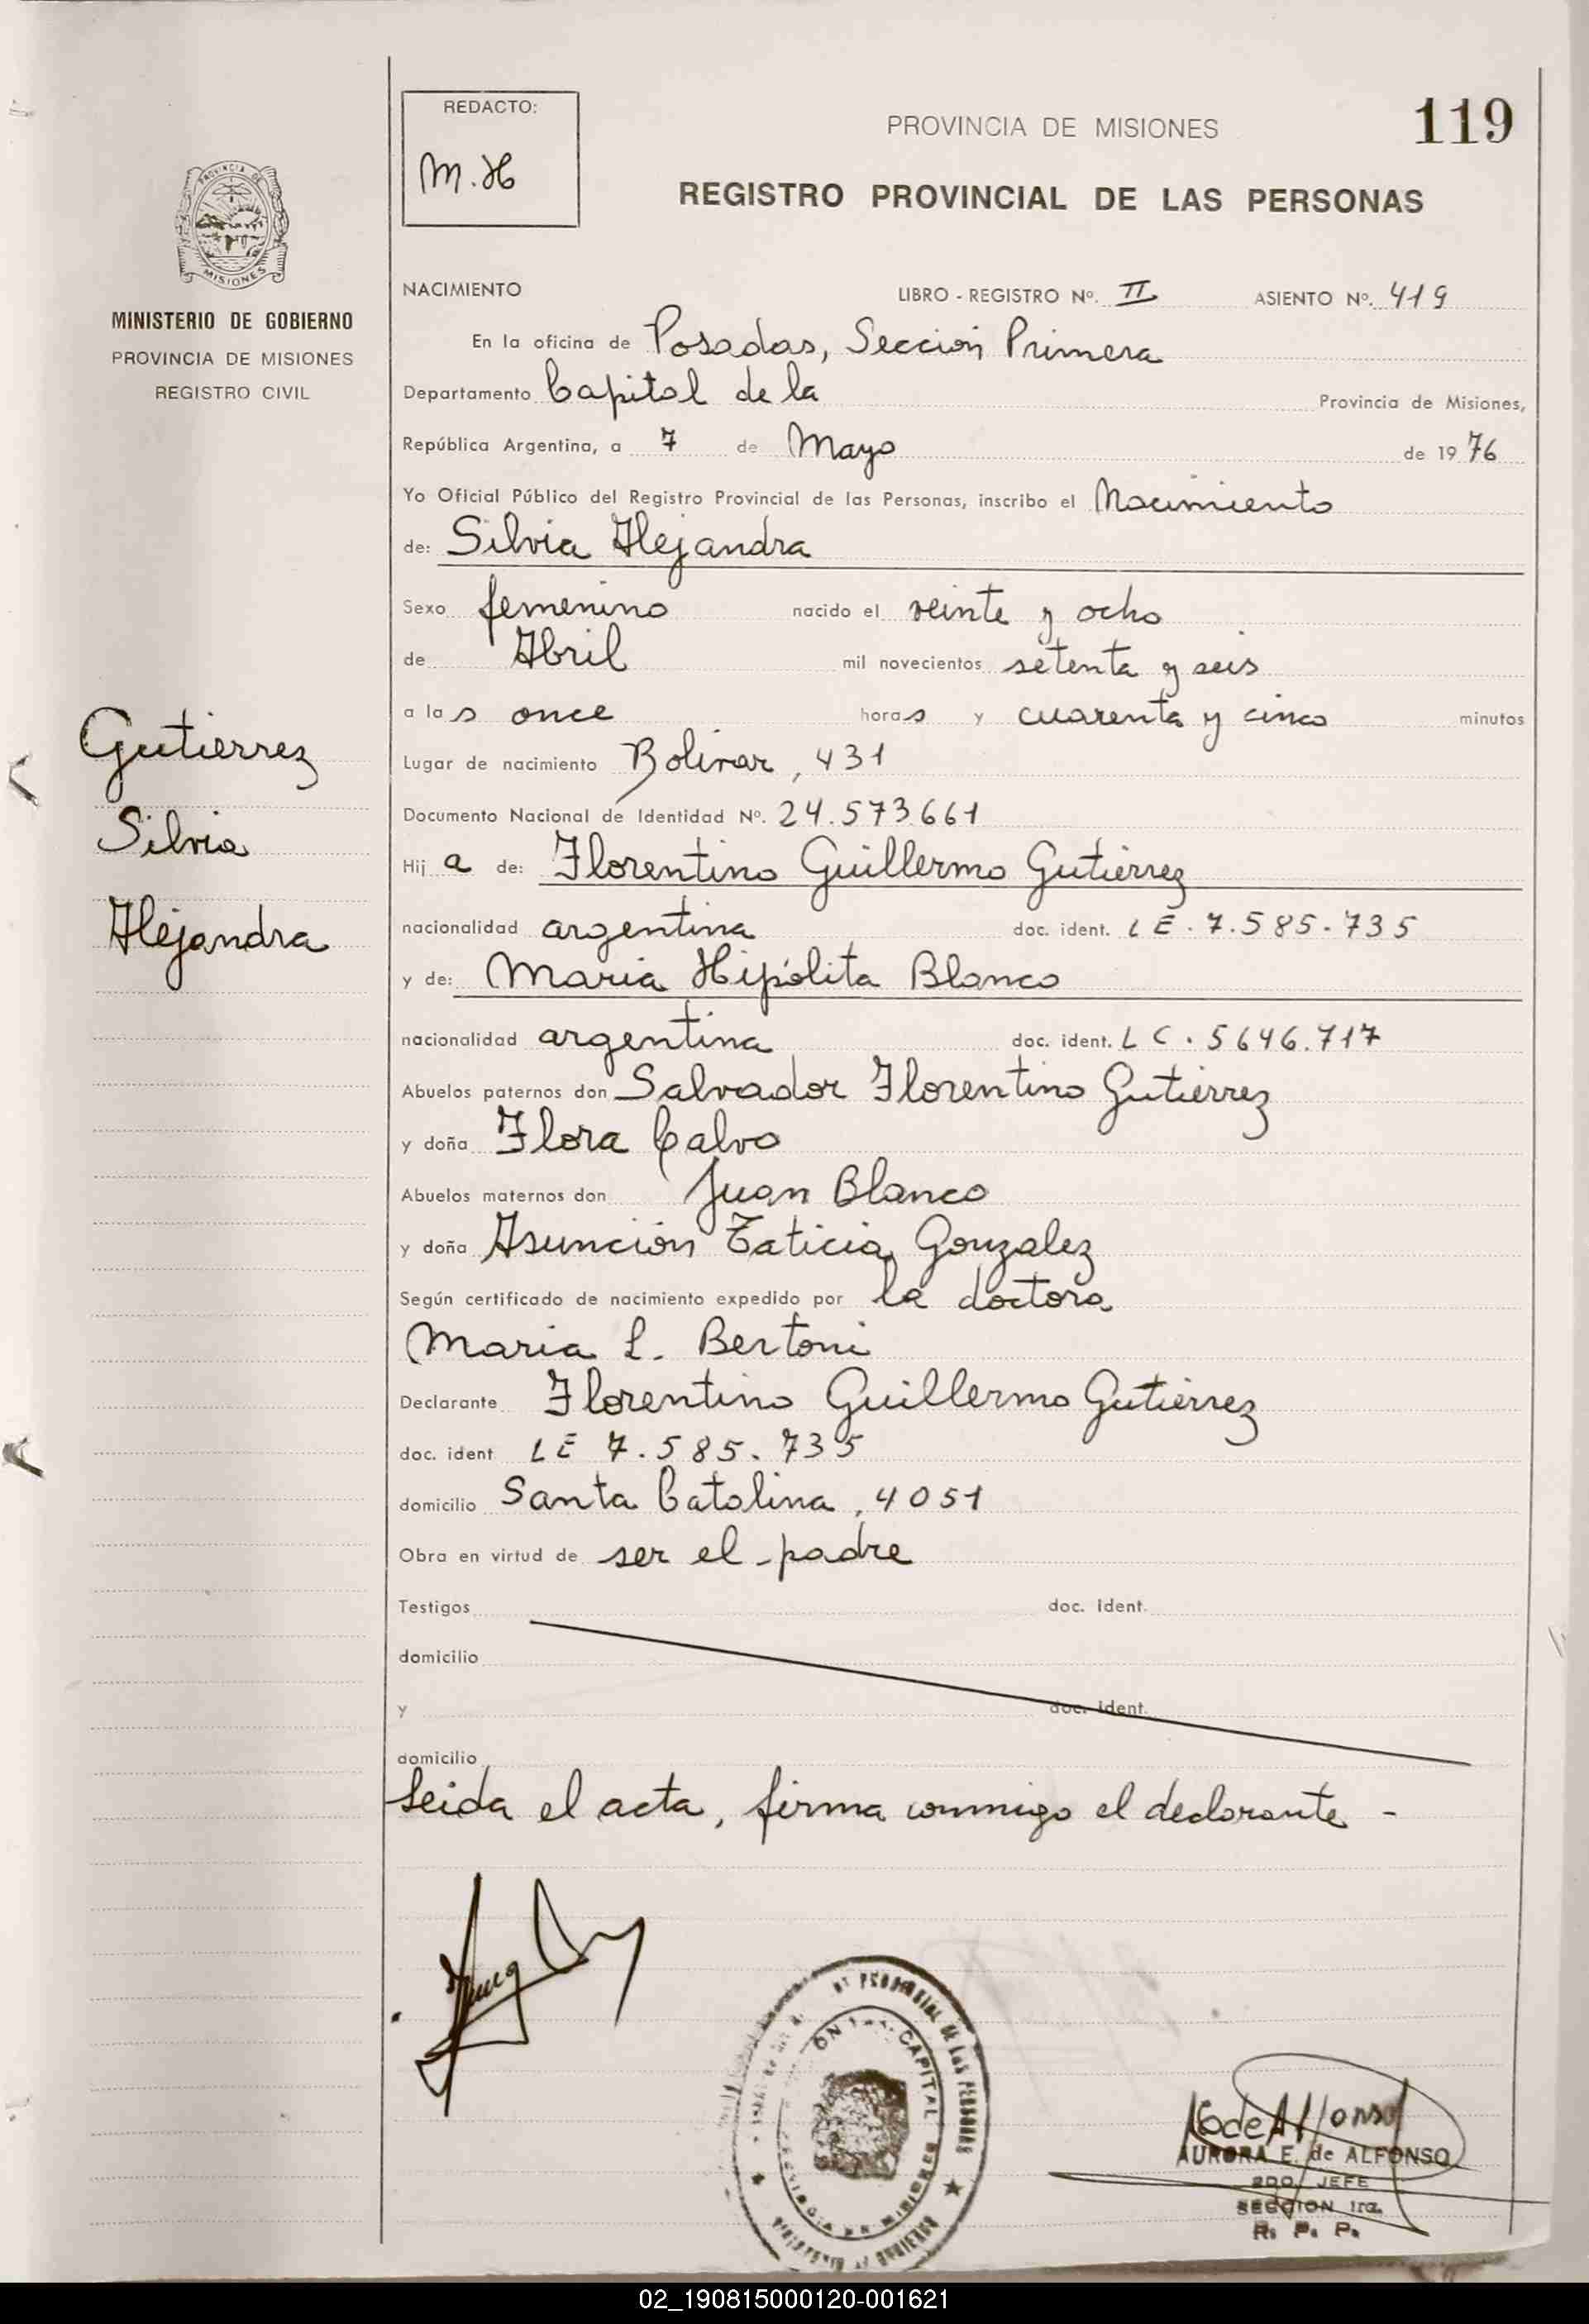 REDACTO:
M.H
PROVINCIA DE MISIONES
119
REGISTRO PROVINCIAL DE LAS PERSONAS
PROVINCIA DE
MISIONES
MINISTERIO DE GOBIERNO
PROVINCIA DE MISIONES
REGISTRO CIVIL
Gutierrez
Silvia
Alejandra
NACIMIENTO LIBRO - REGISTRO Nº. II ASIENTO Nº. 419
En la oficina de Posadas, Sección Primera
Departamento Capital de la Provincia de Misiones,
República Argentina, a 7 de Mayo de 1976
Yo Oficial Público del Registro Provincial de las Personas, inscribo el Nacimiento
de: Silvia Alejandra
Sexo femenino nacido el veinte y ocho
de Abril mil novecientos setenta y seis
a las once horas y cuarenta y cinco minutos
Lugar de nacimiento Bolívar, 431
Documento Nacional de Identidad Nº. 24.573.661
Hija de: Florentino Guillermo Gutiérrez
nacionalidad argentina doc. ident. LE. 7.585.735
y de: Maria Hipólita Blanco
nacionalidad argentina doc. ident. LC. 5646.717
Abuelos paternos don Salvador Florentino Gutiérrez
y doña Flora Calvo
Abuelos maternos don Juan Blanco
y doña Asunción Taticia Gonzalez
Según certificado de nacimiento expedido por la doctora
Maria L. Bertoni
Declarante Florentino Guillermo Gutiérrez
doc. ident LE 7.585.735
domicilio Santa Catalina, 4051
Obra en virtud de ser el padre
Testigos doc. ident.
domicilio
y doc. ident.
domicilio
Leida el acta, firma conmigo el declarante -
CAPITAL
AURORA E. de ALFONSO
2DO. JEFE
SECCION 1ra.
R. P. P.
02_190815000120-001621